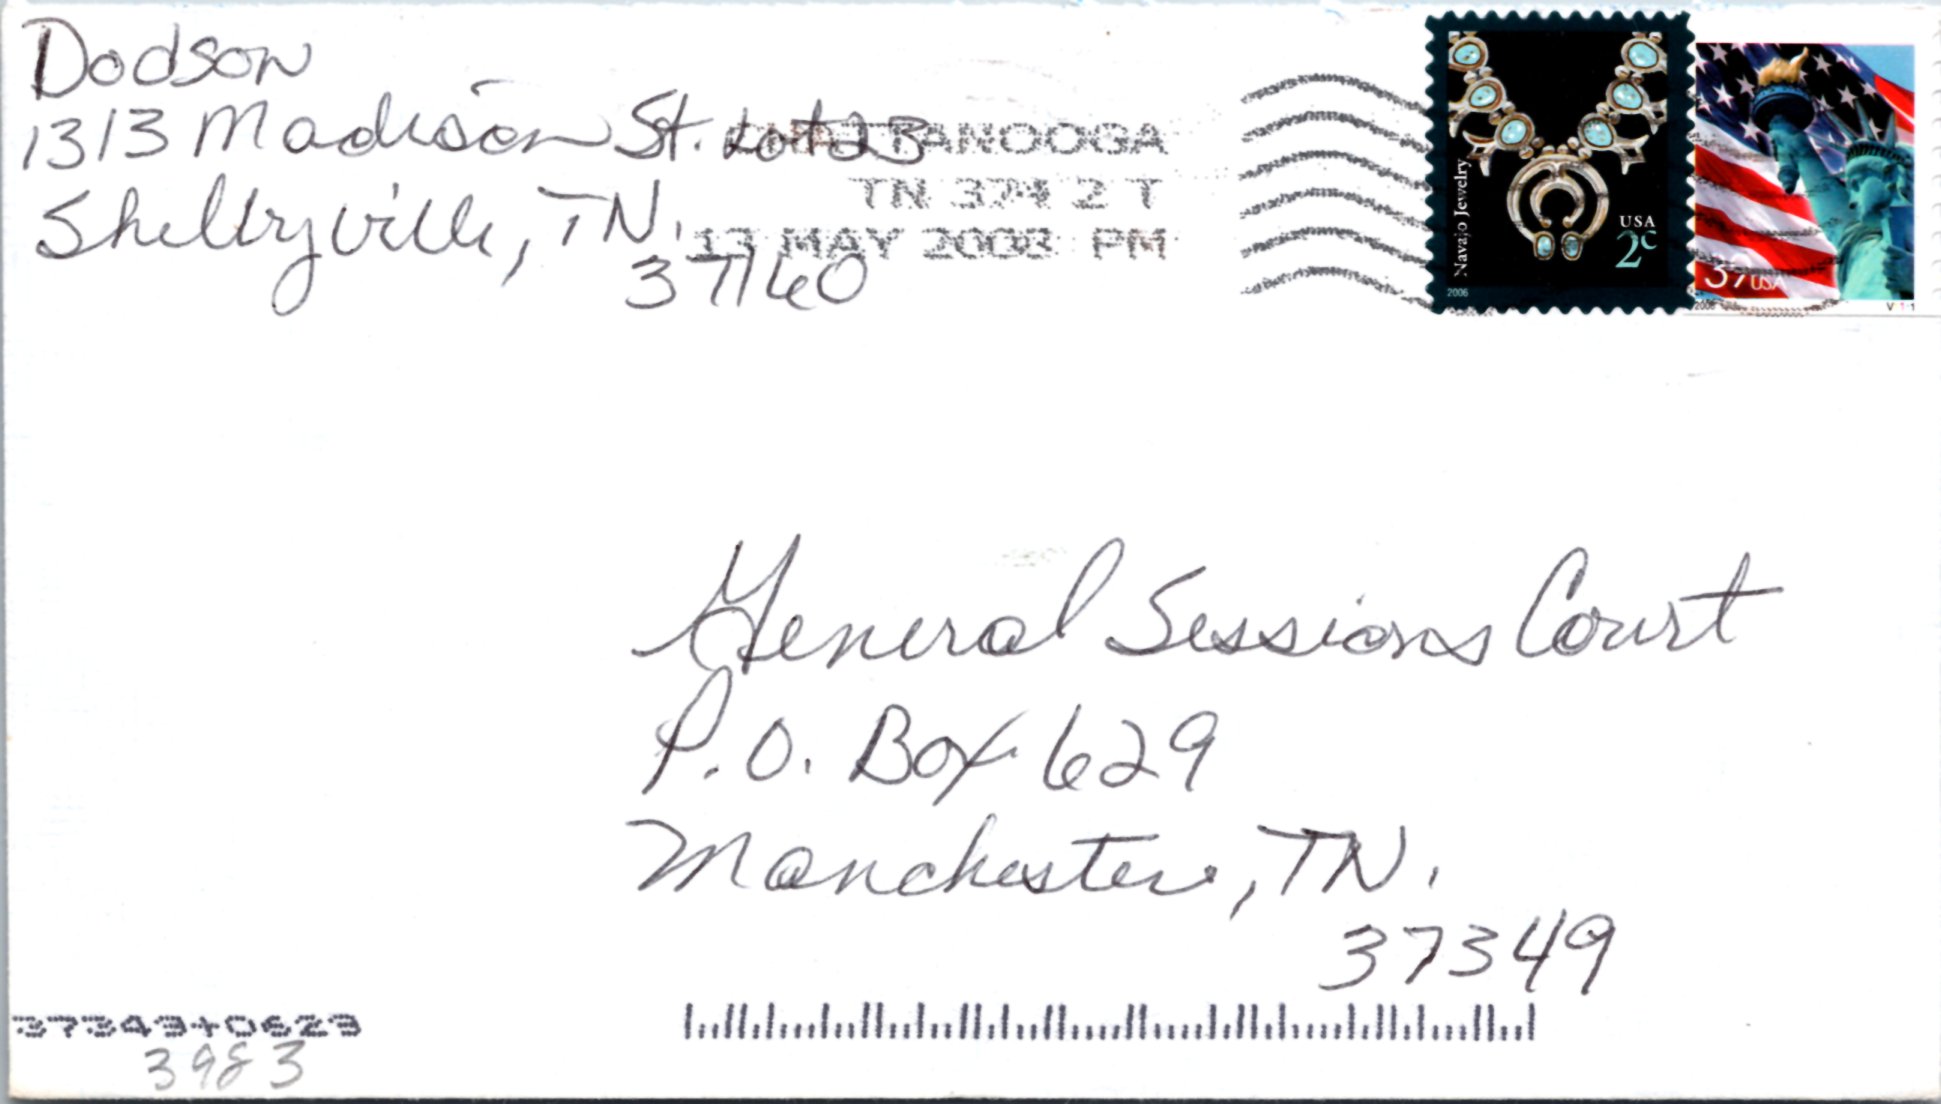 Dodson
1313 Madison St. Lot 23
Shelbyville, TN.
37160
CHATTANOOGA
TN 374 2 T
13 MAY 2008 PM
Navajo Jewelry
USA
2c
2006
37 USA
2006
V 1-1
General Sessions Court
P.O. Box 629
Manchester, TN.
37349
37349+0629
3983